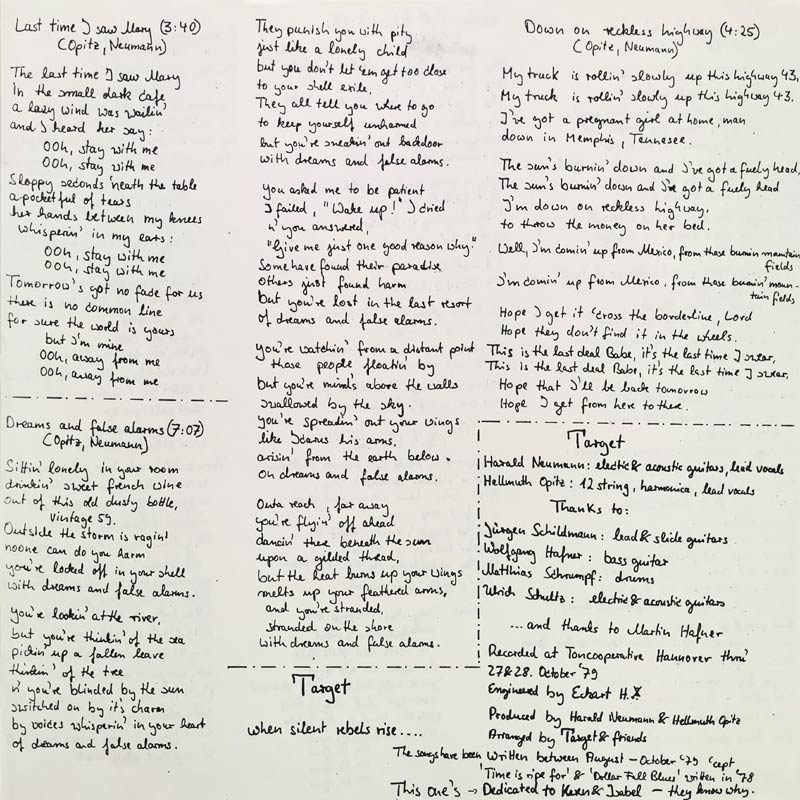 Last time I saw Mary (3:40)
(Opitz, Neumann)
The last time I saw Mary
In the small dark cafe
a lazy wind was wailin'
and I heard her say:
OOh, stay with me
OOh, stay with me
Sloppy seconds 'neath the table
a pocketful of tears
her hands between my knees
whisperin' in my ears:
OOh, stay with me
OOh, stay with me
Tomorrow's got no fade for us
there is no common line
for sure the world is yours
but I'm mine
OOh, away from me
OOh, away from me
Dreams and false alarms (7:07)
(Opitz, Neumann)
Sittin' lonely in your room
drinkin' sweet french wine
out of this old dusty bottle,
vintage 59.
Outside the storm is ragin'
noone can do you harm
you're locked off in your shell
with dreams and false alarms.
you're lookin' at the river,
but you're thinkin' of the sea
pickin' up a fallen leave
thinkin' of the tree
n' you're blinded by the sun
switched on by it's charm
by voices whisperin' in your heart
of dreams and false alarms.
They punish you with pity
just like a lonely child
but you don't let 'em get too close
to your shell exile,
They all tell you where to go
to keep yourself unharmed
but you're sneakin' out backdoor
with dreams and false alarms.
you asked me to be patient
I failed, "Wake up!" I cried
n' you answered,
"Give me just one good reason why."
Some have found their paradise
others just found harm
but you're lost in the last resort
of dreams and false alarms.
you're watchin' from a distant point
those people floatin' by
but you're minds above the walls
swallowed by the sky.
you're spreadin' out your wings
like Icarus his arms,
arisin' from the earth below.
On dreams and false alarms.
Outa reach, far away
you're flyin' off ahead
dancin' there beneath the sun
upon a gilded thread,
but the heat burns up your wings
melts up your feathered arms,
and you're stranded,
stranded on the shore
with dreams and false alarms.
Target
when silent rebels rise....
Down on reckless highway (4:25)
(Opitz, Neumann)
My truck is rollin' slowly up this highway 43,
My truck is rollin' slowly up this highway 43.
I've got a pregnant girl at home, man
down in Memphis, Tennesee.
The sun's burnin' down and I've got a fuely head,
The sun's burnin' down and I've got a fuely head
I'm down on reckless highway,
to throw the money on her bed.
Well, I'm comin' up from Mexico, from those burnin mountain
fields
I'm comin' up from Mexico, from those burnin' moun-
tain fields
Hope I get it 'cross the borderline, Lord
Hope they don't find it in the wheels.
This is the last deal Babe, it's the last time I swear,
This is the last deal Babe, it's the last time I swear,
Hope that I'll be back tomorrow
Hope I get from here to there.
Target
Harald Neumann: electric & acoustic guitars, lead vocals
Hellmuth Opitz: 12 string, harmonica, lead vocals
Thanks to:
Jürgen Schildmann: lead & slide guitars
Wolfgang Hafner: bass guitar
Matthias Schrumpf: drums
Ulrich Schultz: electric & acoustic guitars
...and thanks to Martin Hafner
Recorded at Toncooperative Hannover thru'
27 & 28. October '79
Engineered by Eckart H.
Produced by Harald Neumann & Hellmuth Opitz
Arranged by Target & friends
The songs have been written between August – October '79 'cept
'Time is ripe for' & 'Dollar Full Blues' written in '78
This one's → Dedicated to Karen & Isabel – they know why.